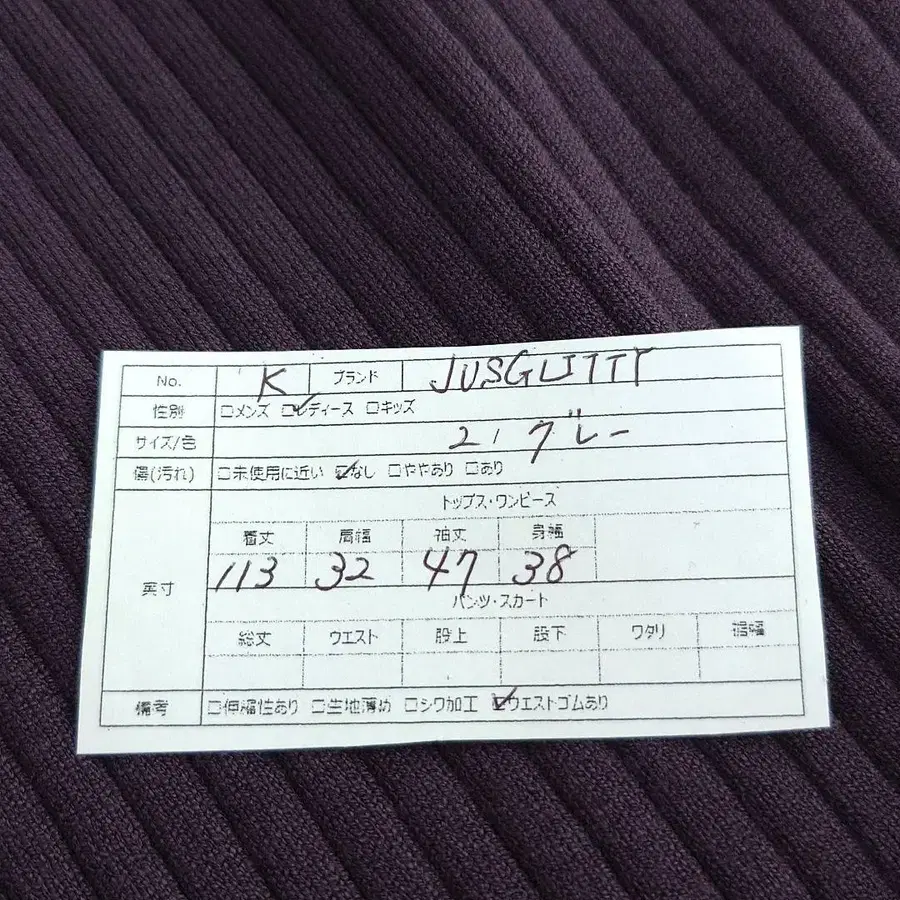 No. K ブランド JUSGLITTY
性別 □メンズ ☑レディース □キッズ
サイズ/色 2/グレー
傷(汚れ) □未使用に近い ☑なし □ややあり □あり
トップス・ワンピース
着丈 肩幅 袖丈 身幅
実寸 113 32 47 38
パンツ・スカート
総丈 ウエスト 股上 股下 ワタリ 裾幅
備考 □伸縮性あり □生地薄め □シワ加工 ☑ウエストゴムあり